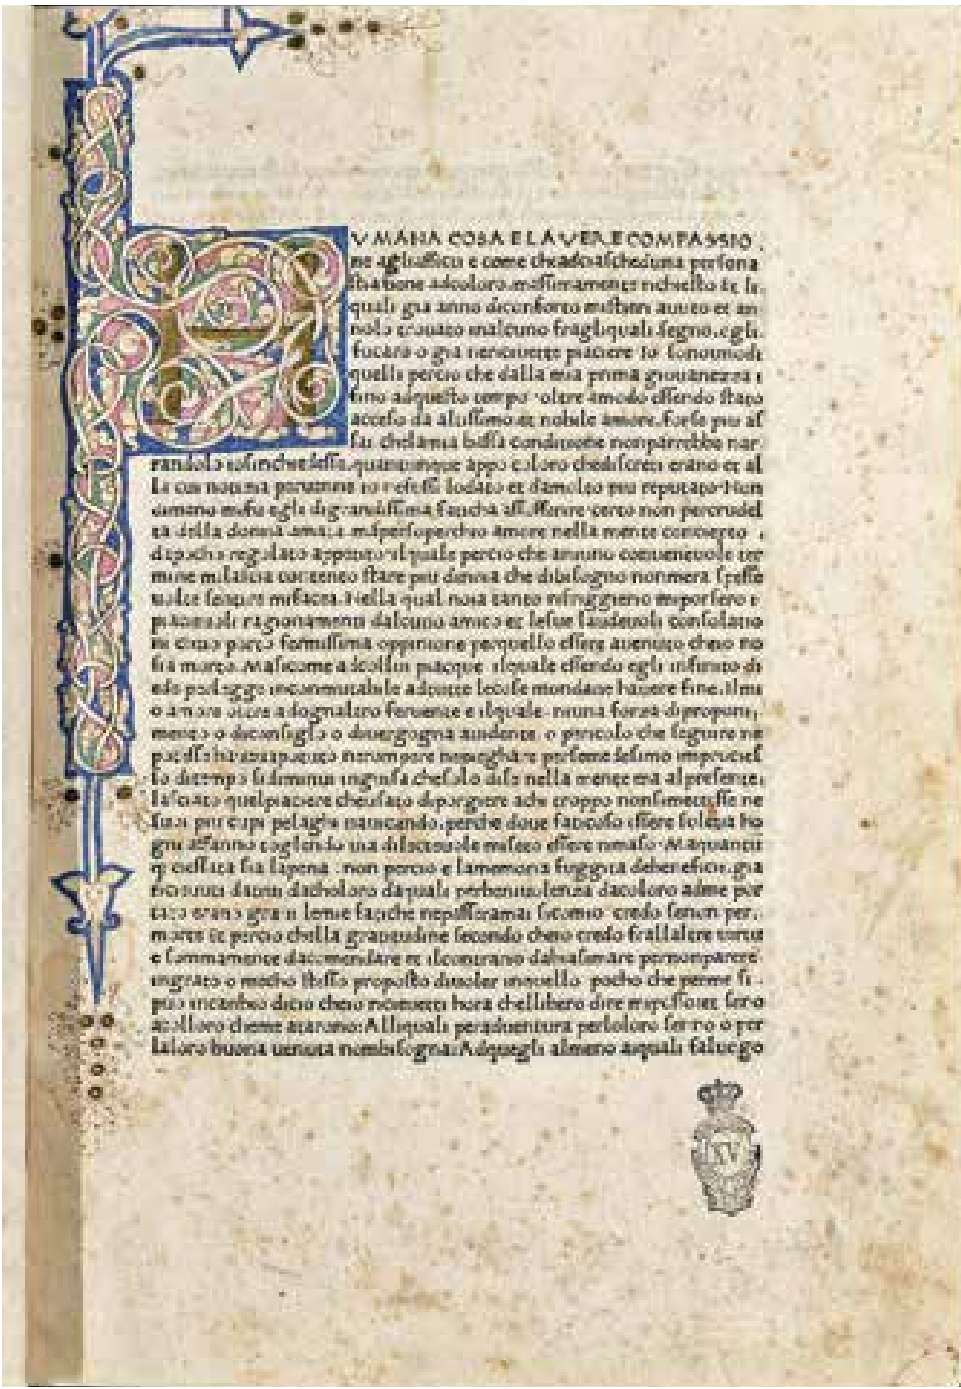 HVMANA COSA E LAVERE COMPASSIO
ne agliafflicti e come cheadciascheduna persona
stia bene adcoloro massimamente richiesto et li
quali gia anno diconforto mistieri auuto et an
nolo trouato inalcuno fragliquali segno.egli.
fucaro o gia nericeuette piacere Io sonounodi
quelli percio che dalla mia prima giouanezza i
fino adquesto tempo oltere amodo essendo stato
acceso da altissimo et nobile amore.forse piu as
sai chelamia bassa conditione nonparrebbe nar
randolo quantunque appo coloro chediscreti erano et al
la cui notitia peruenne io lodato et damolto piu reputato Non
dimeno mifu egli digrandissima faticha certo non percrudel
ta della donna amata mapersoperchio amore nella mente
dapocho regulato appetito ilquale percio che aniuno conueneuole ter
mine milascia contento stare piu dinoia che dibisogno nonmera spesse
uolte sentire mifacea.Nella qual noia tanto rifriggierio miporsero i
piaceuoli ragionamenti dalcuno amico et lesue laudeuoli consolatio
ni fermissima oppinione perquello essere auenuto cheio no
sia morto.Masicome adcollui piacque ilquale essendo egli infinito di
ede perlegge inconmutabile adtutte lecose mondane hauere fine.Ilmi
o amore oltere adognaltro feruente e ilquale niuna forza diproponi
mento o diconsiglo o diuergogna euidente o pericolo che seguire ne
potesse
to ditempo sidiminui inguisa chesolo dise nella mente ma alpresente
lasciato quelpiacere cheusato diporgiere achi troppo nonsimettesse ne
suoi piu cupi pelaghi nauicando.perche doue faticoso essere solea ho
gni affanno togliendo uia dilecteuole essere rimaso.Maquantu
q cessata sia lapena non percio e lamemoria fuggita debeneficii gia
riceuuti datti dacholoro daquali perbeniuolenza dacoloro adme por
tato erano graui lemie fatiche nepasseramai sicomio credo senon per
morte Et percio chella gratitudine secondo cheio credo frallaltre uirtu
e sommamente dacomendare et ilcontrario dabiasimare pernonparere
ingrato o mecho stesso proposto diuoler inquello pocho che perme si
puo incambio dicio cheio riceuetti hora chellibero dire
acolloro cheme atarono:Alliquali peraduentura perloloro senno o per
laloro buona uentura nonbisogna:Adquegli almeno aiquali faluogo
XV